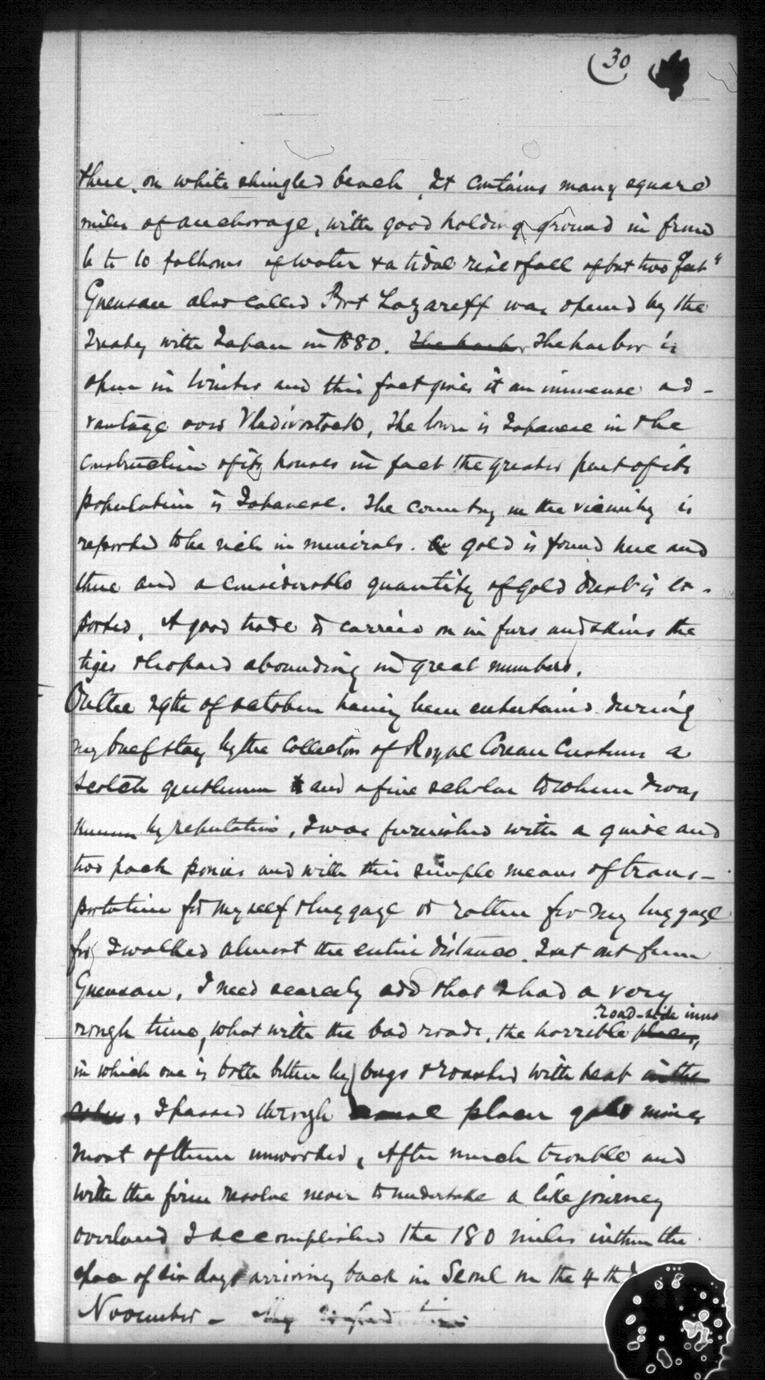 (30
there, on white shingled beach, It contains many square
miles of anchorage, with good holding ground in from
6 to 10 fathoms of water & a tidal rise & fall of but two feet"
Guensan also called Port Lazareff was opened by the
Treaty with Japan in 1880. The harbor The harbor is
open in Winter and this fact gives it an immense ad-
vantage over Vladivostock, The town is Japanese in the
construction of its houses in fact the greater part of its
population is Japanese. The country in the vicinity is
reported to be rich in minerals. gold is found here and
there and a considerable quantity of Gold dust is ex-
ported, A good trade is carried on in furs and skins the
tiger & leopard abounding in great numbers.
On the 29th of October having been entertained during
my brief stay by the Collector of Royal Corean Customs a
Scotch gentleman and a fine scholar to whom I was
known by reputation, I was furnished with a guide and
two pack ponies and with this simple means of trans-
portation for myself & luggage or rather for my luggage
for I walked almost the entire distance. I set out from
Guensan, I need scarcely add that I had a very
road-side inns
rough time, what with the bad roads, the horrible places,
in which one is both bitten by bugs & roasted with heat
I passed through placer gold mines
most of them unworked, After much trouble and
with the firm resolve never to undertake a like journey
overland I accomplished the 180 miles within the
space of six days arriving back in Seoul on the 4th
November - My